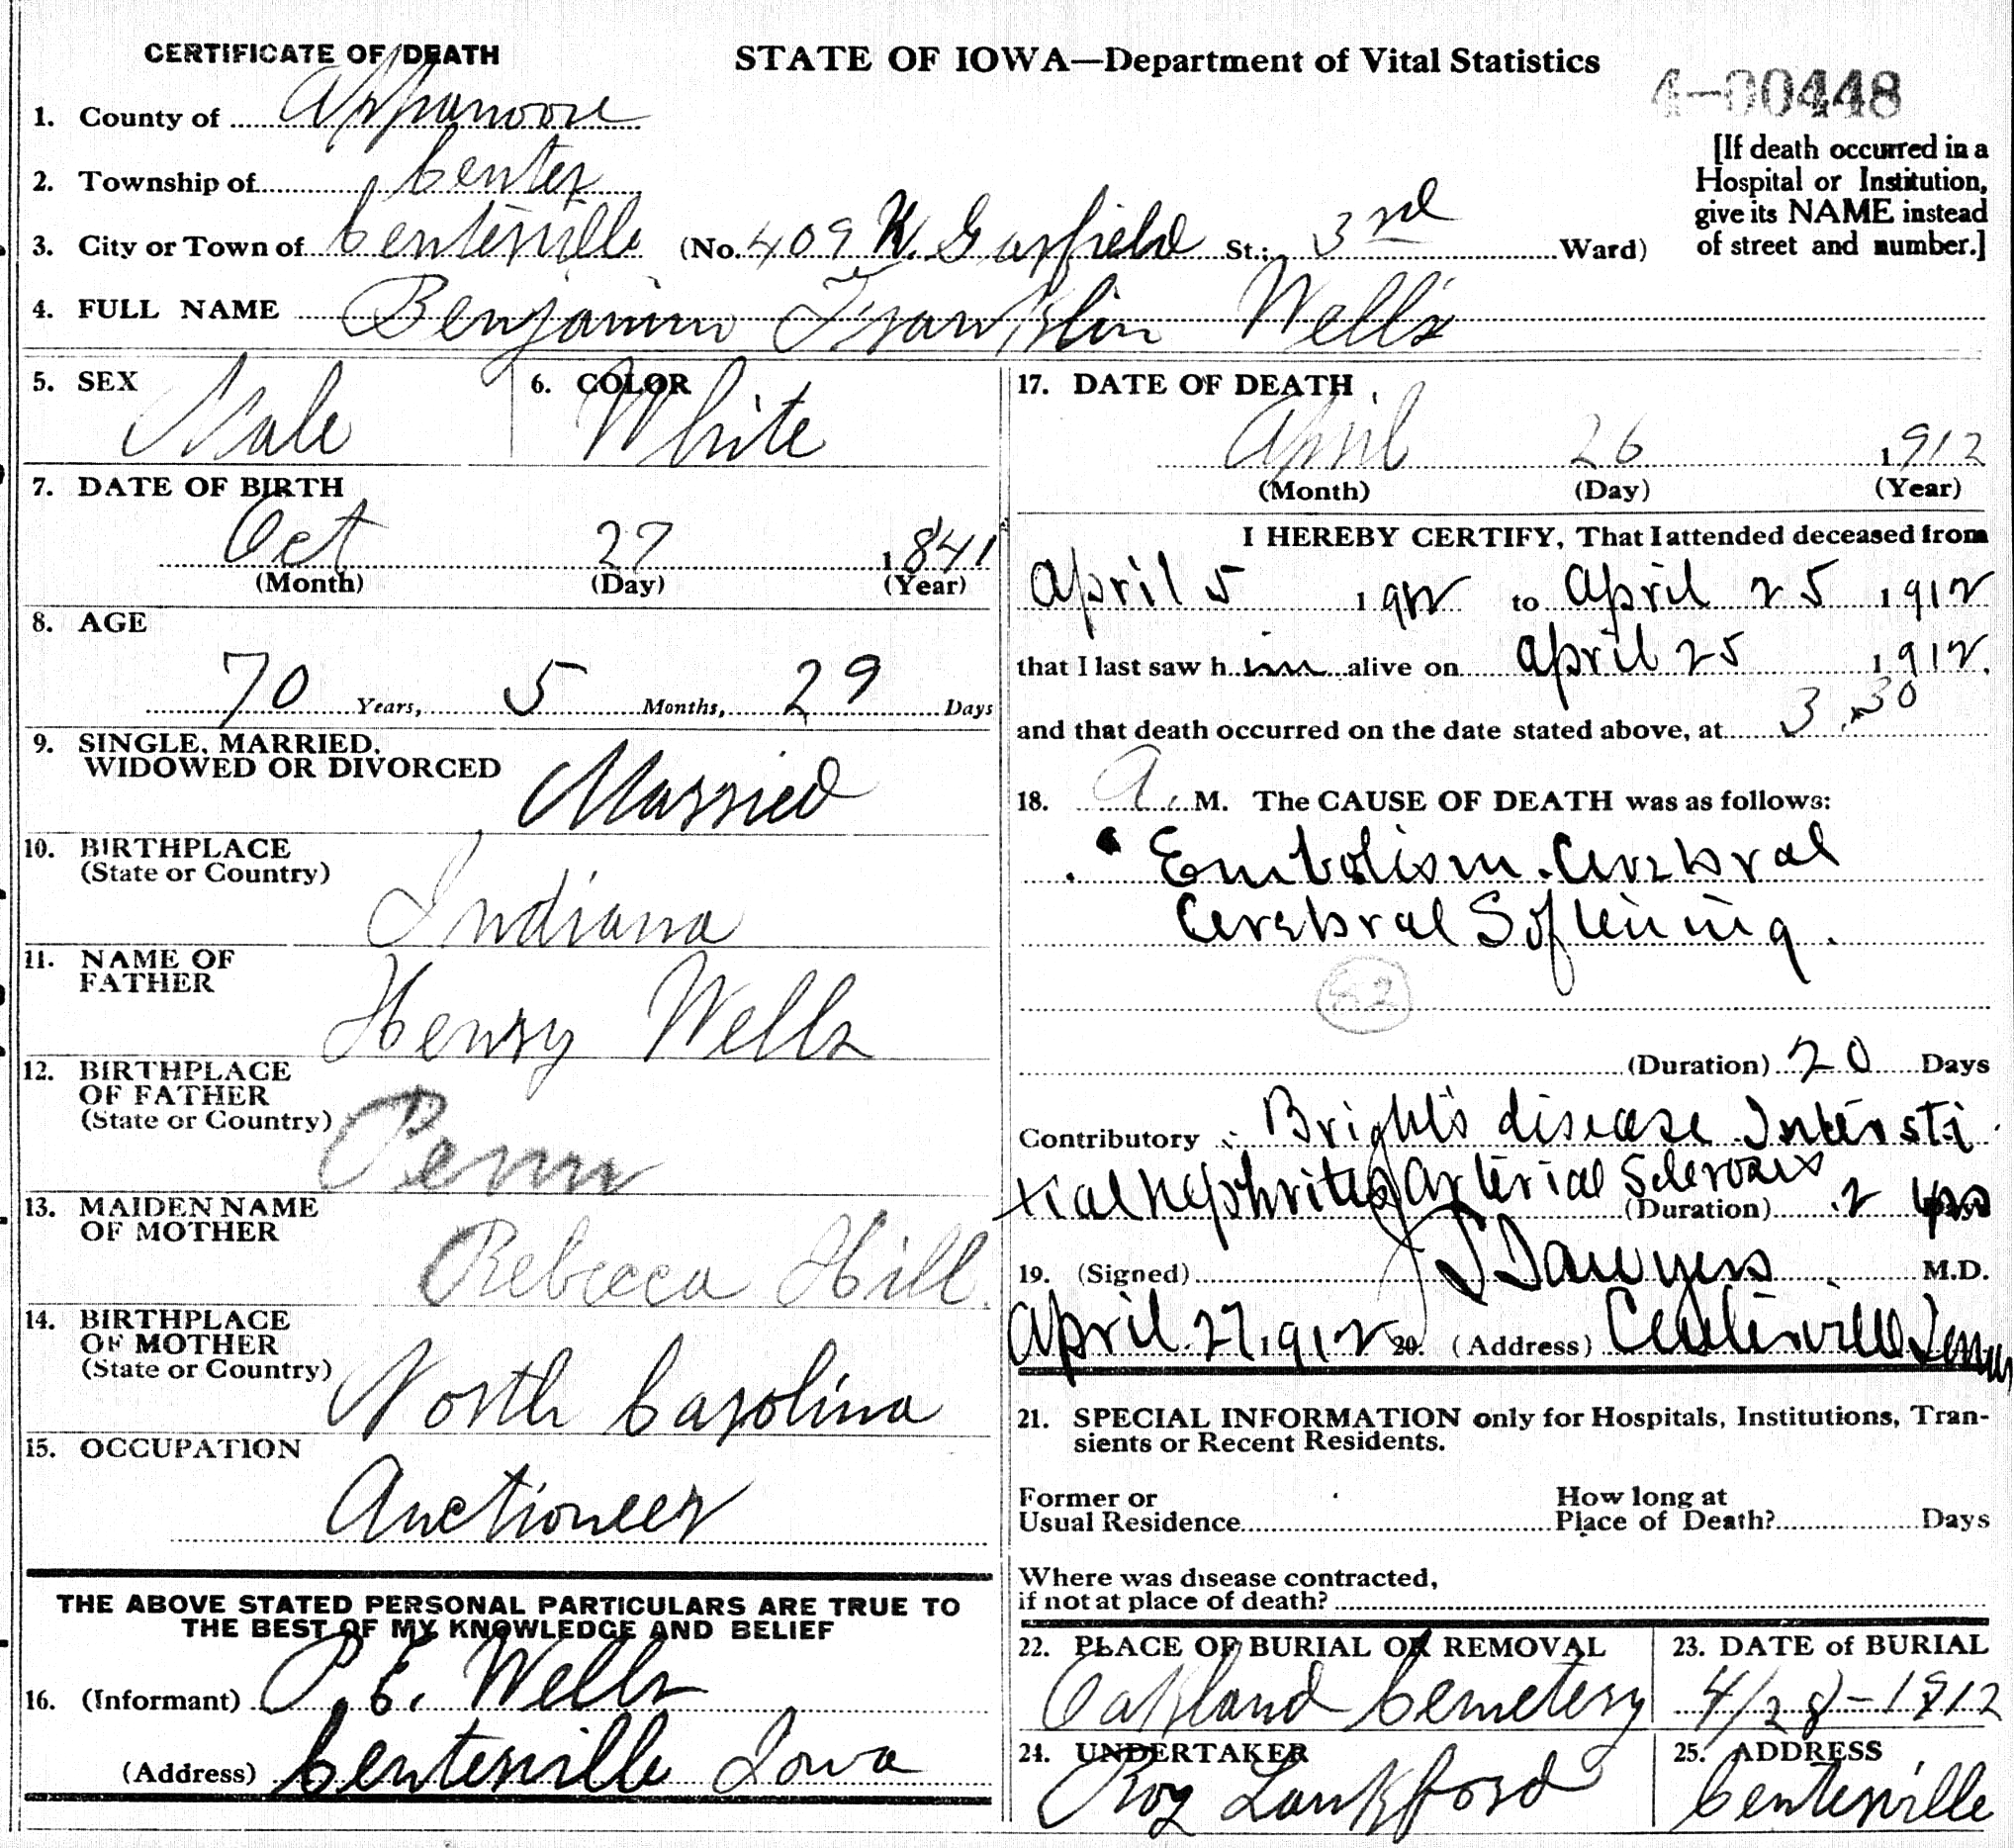 CERTIFICATE OF DEATH
STATE OF IOWA—Department of Vital Statistics
4-00448
1. County of Appanoose
2. Township of Center
3. City or Town of Centerville (No. 409 N. Garfield St.; 3rd Ward)
[If death occurred in a
Hospital or Institution,
give its NAME instead
of street and number.]
4. FULL NAME Benjamin Franklin Wells
5. SEX Male
6. COLOR White
7. DATE OF BIRTH
Oct 27 1841
(Month) (Day) (Year)
8. AGE
70 Years, 5 Months, 29 Days
9. SINGLE, MARRIED,
WIDOWED OR DIVORCED Married
10. BIRTHPLACE
(State or Country) Indiana
11. NAME OF
FATHER Henry Wells
12. BIRTHPLACE
OF FATHER
(State or Country) Penn
13. MAIDEN NAME
OF MOTHER Rebecca Hill
14. BIRTHPLACE
OF MOTHER
(State or Country) North Carolina
15. OCCUPATION
Auctioneer
THE ABOVE STATED PERSONAL PARTICULARS ARE TRUE TO
THE BEST OF MY KNOWLEDGE AND BELIEF
16. (Informant) P. E. Wells
(Address) Centerville Iowa
17. DATE OF DEATH
April 26 1912
(Month) (Day) (Year)
I HEREBY CERTIFY, That I attended deceased from
April 5 1912 to April 25 1912
that I last saw him alive on April 25 1912.
and that death occurred on the date stated above, at 3.30
18. A. M. The CAUSE OF DEATH was as follows:
Embolism. Cerebral
Cerebral Softening.
(Duration) 20 Days
Contributory Bright's disease Intersti
tial Nephritis Arterial Sclerosis
(Duration) 2 yrs
19. (Signed) J L Sawyers M.D.
April 27 1912 20. (Address) Centerville Iowa
21. SPECIAL INFORMATION only for Hospitals, Institutions, Tran-
sients or Recent Residents.
Former or
Usual Residence
How long at
Place of Death? Days
Where was disease contracted,
if not at place of death?
22. PLACE OF BURIAL OR REMOVAL
Oakland Cemetery
23. DATE of BURIAL
4/28-1912
24. UNDERTAKER
Roy Lankford
25. ADDRESS
Centerville